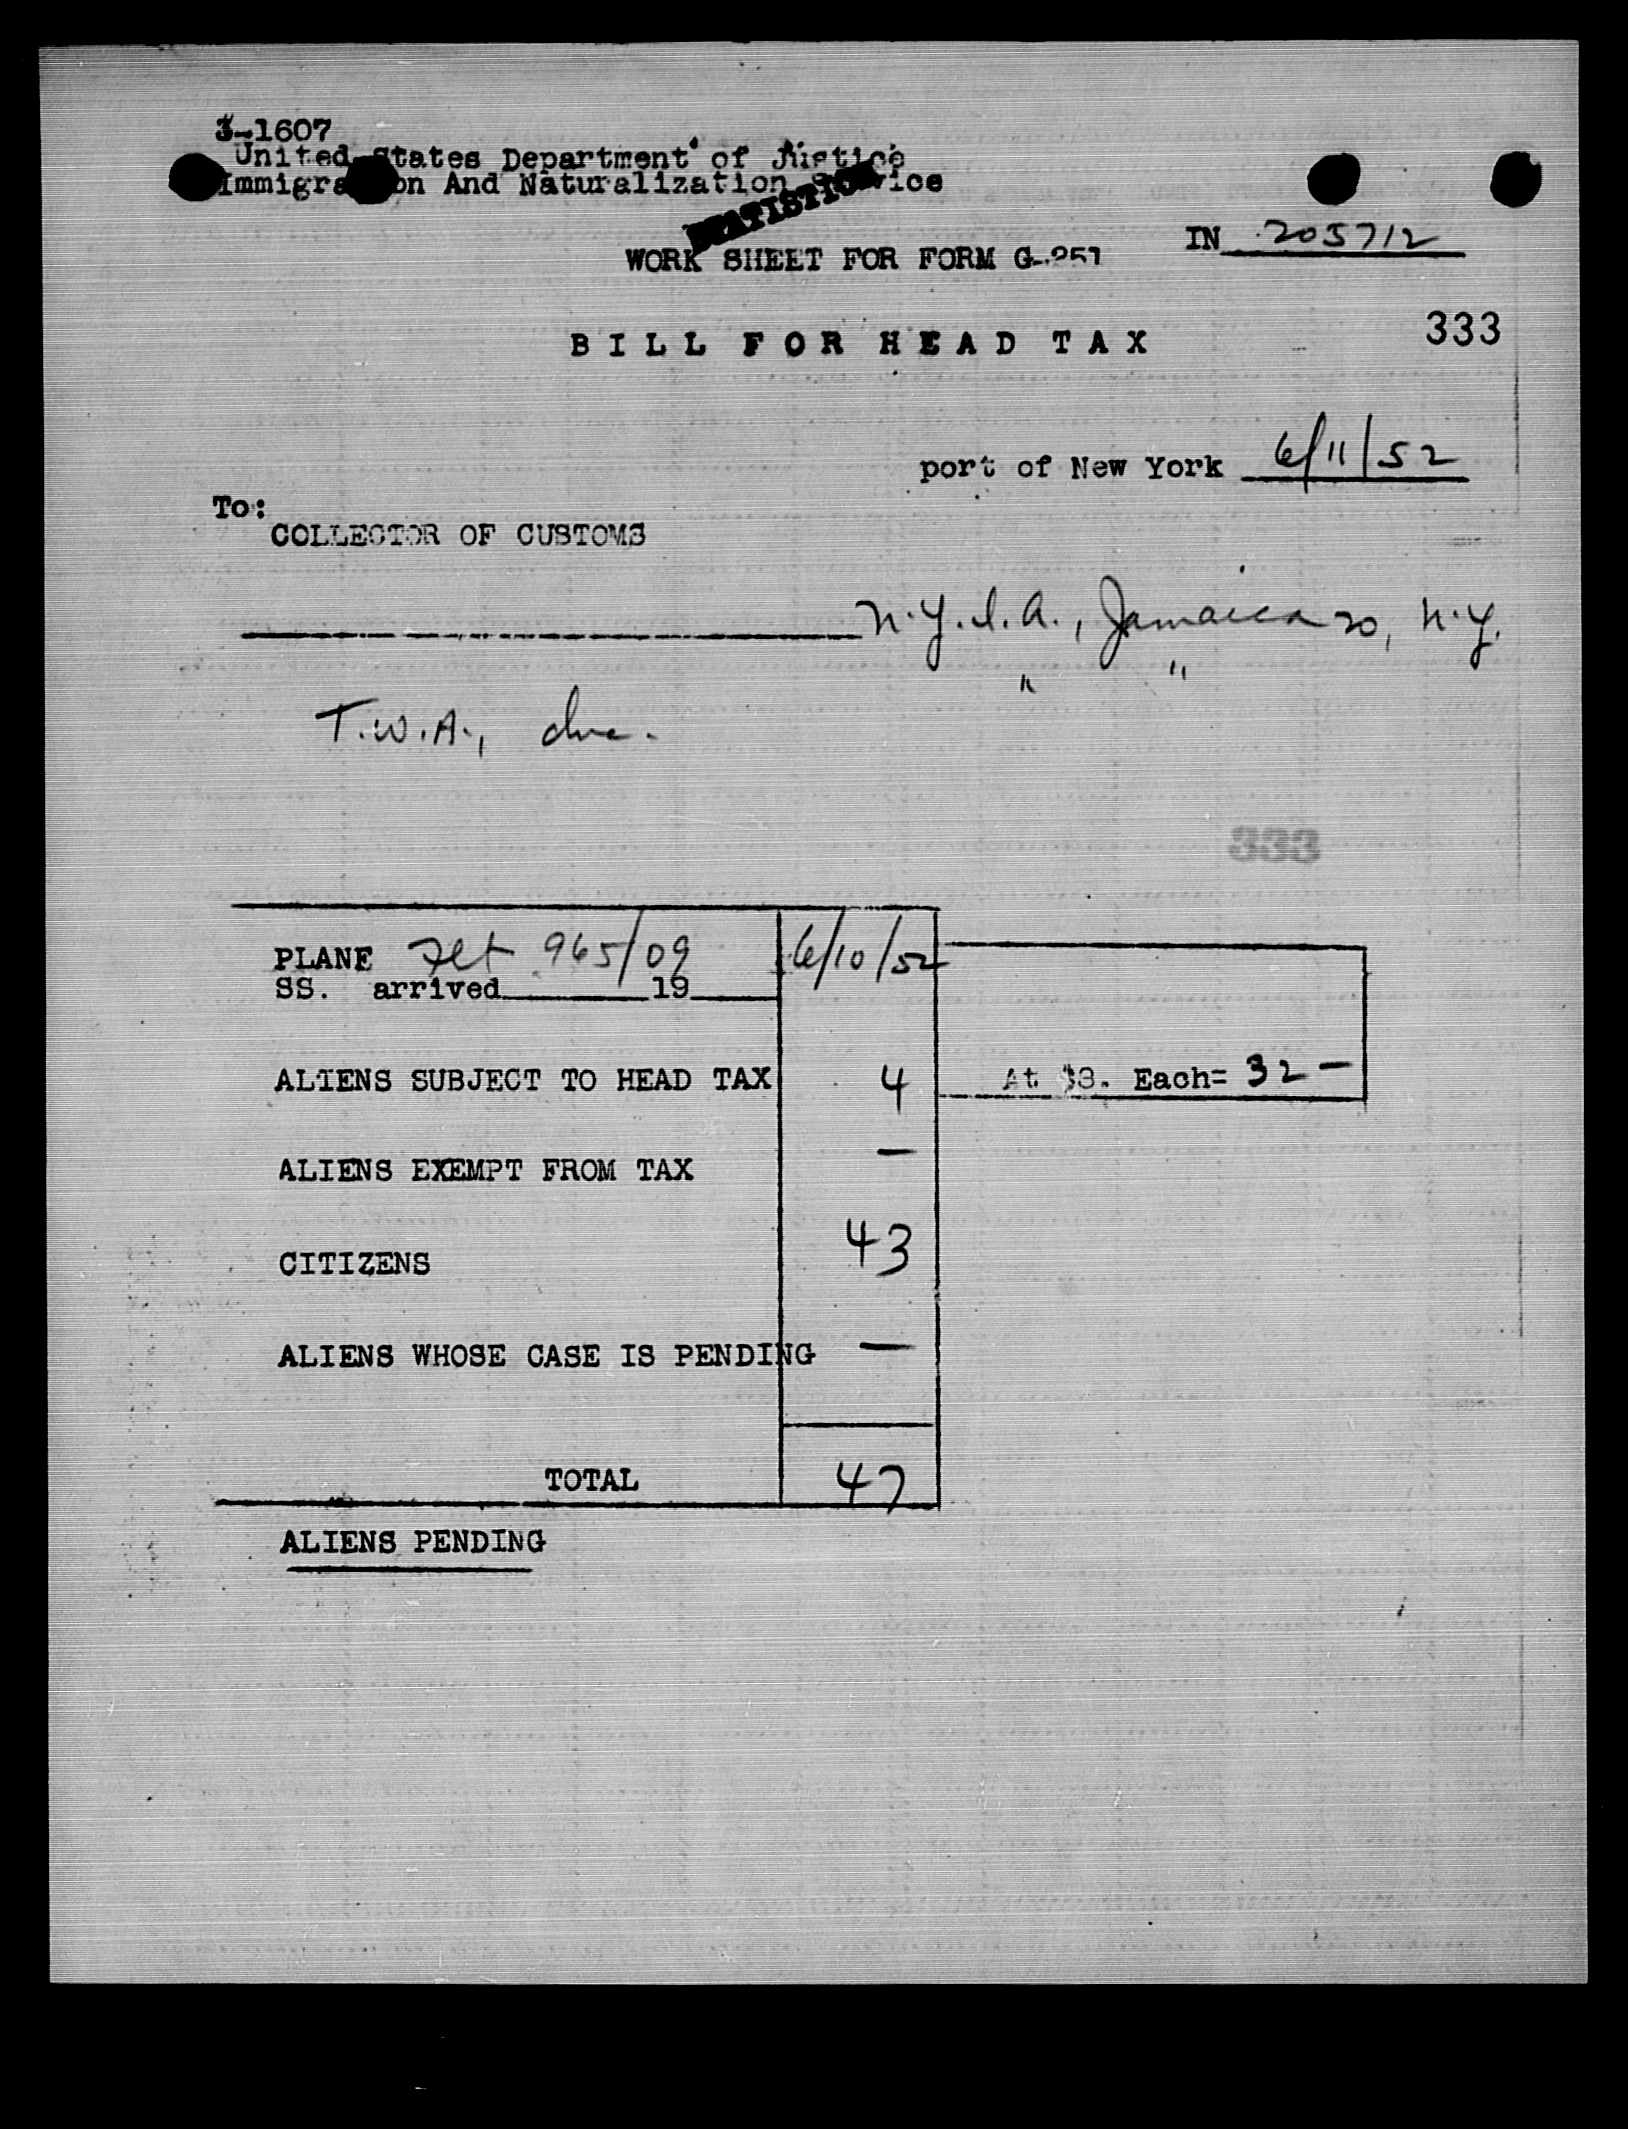 3-1607
United States Department of Justice
Immigration And Naturalization Service
STATISTICS
WORK SHEET FOR FORM G-251
IN 205712
BILL FOR HEAD TAX
333
port of New York 6/11/52
To:
COLLECTOR OF CUSTOMS
N.Y.I.A., Jamaica 20, N.Y.
" "
T.W.A., Inc.
333
PLANE Flt 965/09 6/10/52
SS. arrived 19
ALIENS SUBJECT TO HEAD TAX 4 At $8. Each= 32 —
ALIENS EXEMPT FROM TAX —
CITIZENS 43
ALIENS WHOSE CASE IS PENDING —
TOTAL 47
ALIENS PENDING